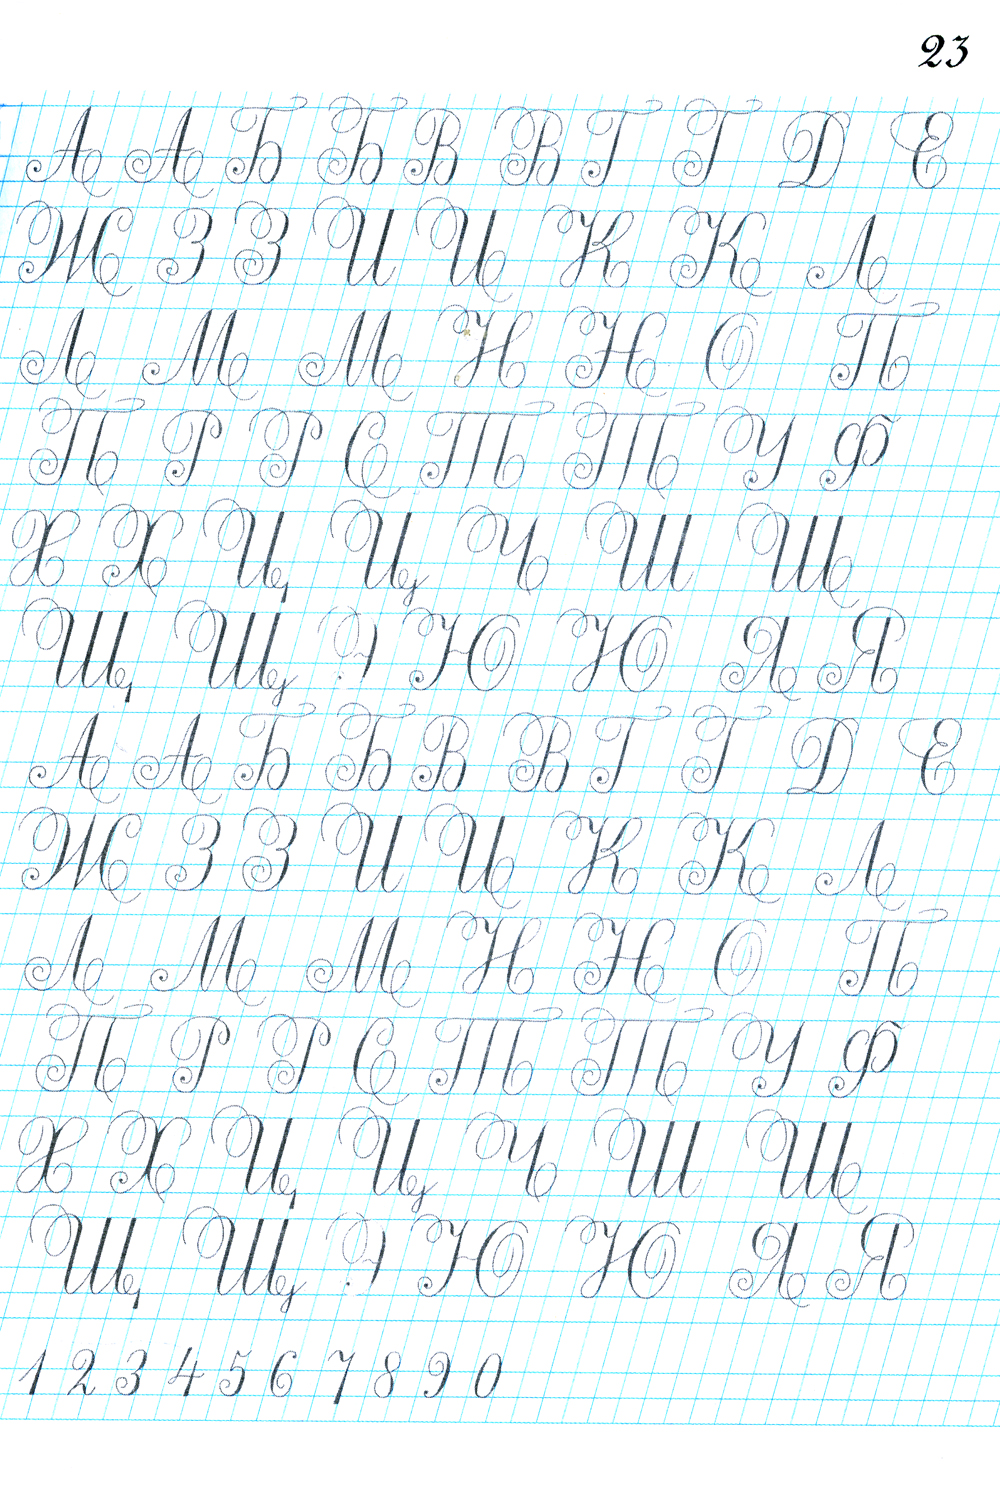 23
А А Б Б В В Г Г Д Е
Ж З З И И К К Л
Л М М Н Н О П
П Р Р С Т Т У Ф
Х Х Ц Ц Ч Ш Ш
Щ Щ Э Ю Ю Я Я
А А Б Б В В Г Г Д Е
Ж З З И И К К Л
Л М М Н Н О П
П Р Р С Т Т У Ф
Х Х Ц Ц Ч Ш Ш
Щ Щ Э Ю Ю Я Я
1 2 3 4 5 6 7 8 9 0